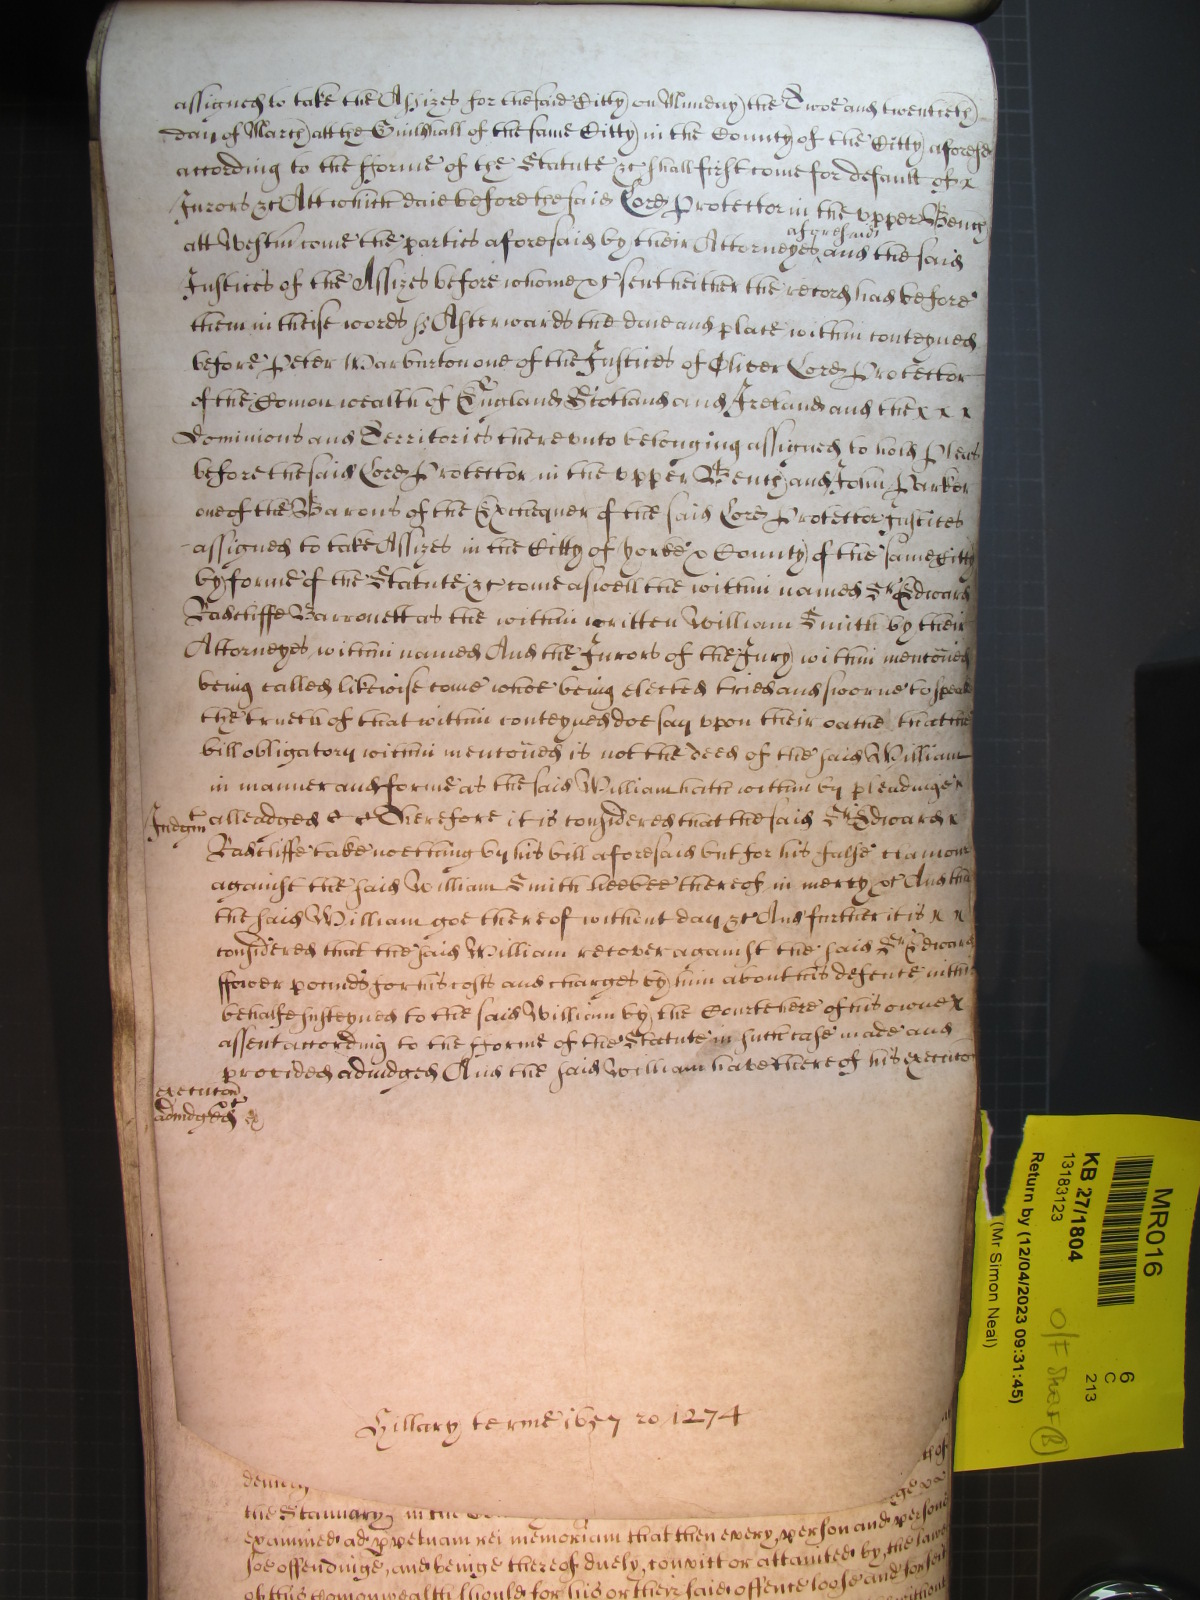 assigned to take the Assizes for the said Citty on Munday the Twoe and twentieth
day of March att the Guildhall of the same Citty in the County of the Citty aforesd
according to the fforme of the Statute &c shall first come for default of x
Jurors &c Att which daie before the said Lord Protector in the upper Bench
att Westm come the parties aforesaid by their Attorneyes aforesaid and the said
Justices of the Assizes before whome &c sent heither the record had before
them in theise words ss Afterwards the daie and place within conteyned
before Peter Warburton one of the Justices of Oliver Lord Protector
of the Comon wealth of England Scotland and Ireland and the x x x
Dominions and Territories there unto belonging assigned to hold Pleas
before the said Lord Protector in the upper Bench and John Parker
one of the Barons of the Exchequer of the said Lord Protector Justices
assigned to take Assizes in the Citty of Yorke & County of the same Citty
by forme of the Statute &c come aswell the within named Sr Edward
Radcliffe Barronett as the within written William Smith by their
Attorneyes within named And the Jurors of the Jury within mentoned
being called likewise come whoe being elected tried and sworne to speak
the trueth of that within conteyned doe say upon their oathe that the
bill obligatory within mentoned is not the deed of the said William
in manner and forme as the said William hath within by pleadinge x
Judgmt
alleadged & &c Therefore it is considered that the said Sr Edward x
Radcliffe take noething by his bill aforesaid but for his false clamour
against the said William Smith heebee thereof in mercy &c And tht
the said William goe thereof without day &c And further it is x x
considered that the said William recover against the said Sr Edward
ffower pounds for his costs and charges by him about his defence in this
behalfe susteyned to the said William by the Courte here of his owne x
assent according to the fforme of the Statute in such case made and
provided adiudged And the said William have thereof his execucon
execucon
&c
adiudged
Hillary terme 1657 ro 1274
the Stannary in the
examined ad ppetuam rei memoriam that then every person and persons
soe offendinge, and beinge thereof duely, convict or attainted by, the lawes
of this Comonwealth should for his or their said offence loose and forfeit
MR016
KB 27/1804
13183123
Return by (12/04/2023 09:31:45)
(Mr Simon Neal)
6
C
213